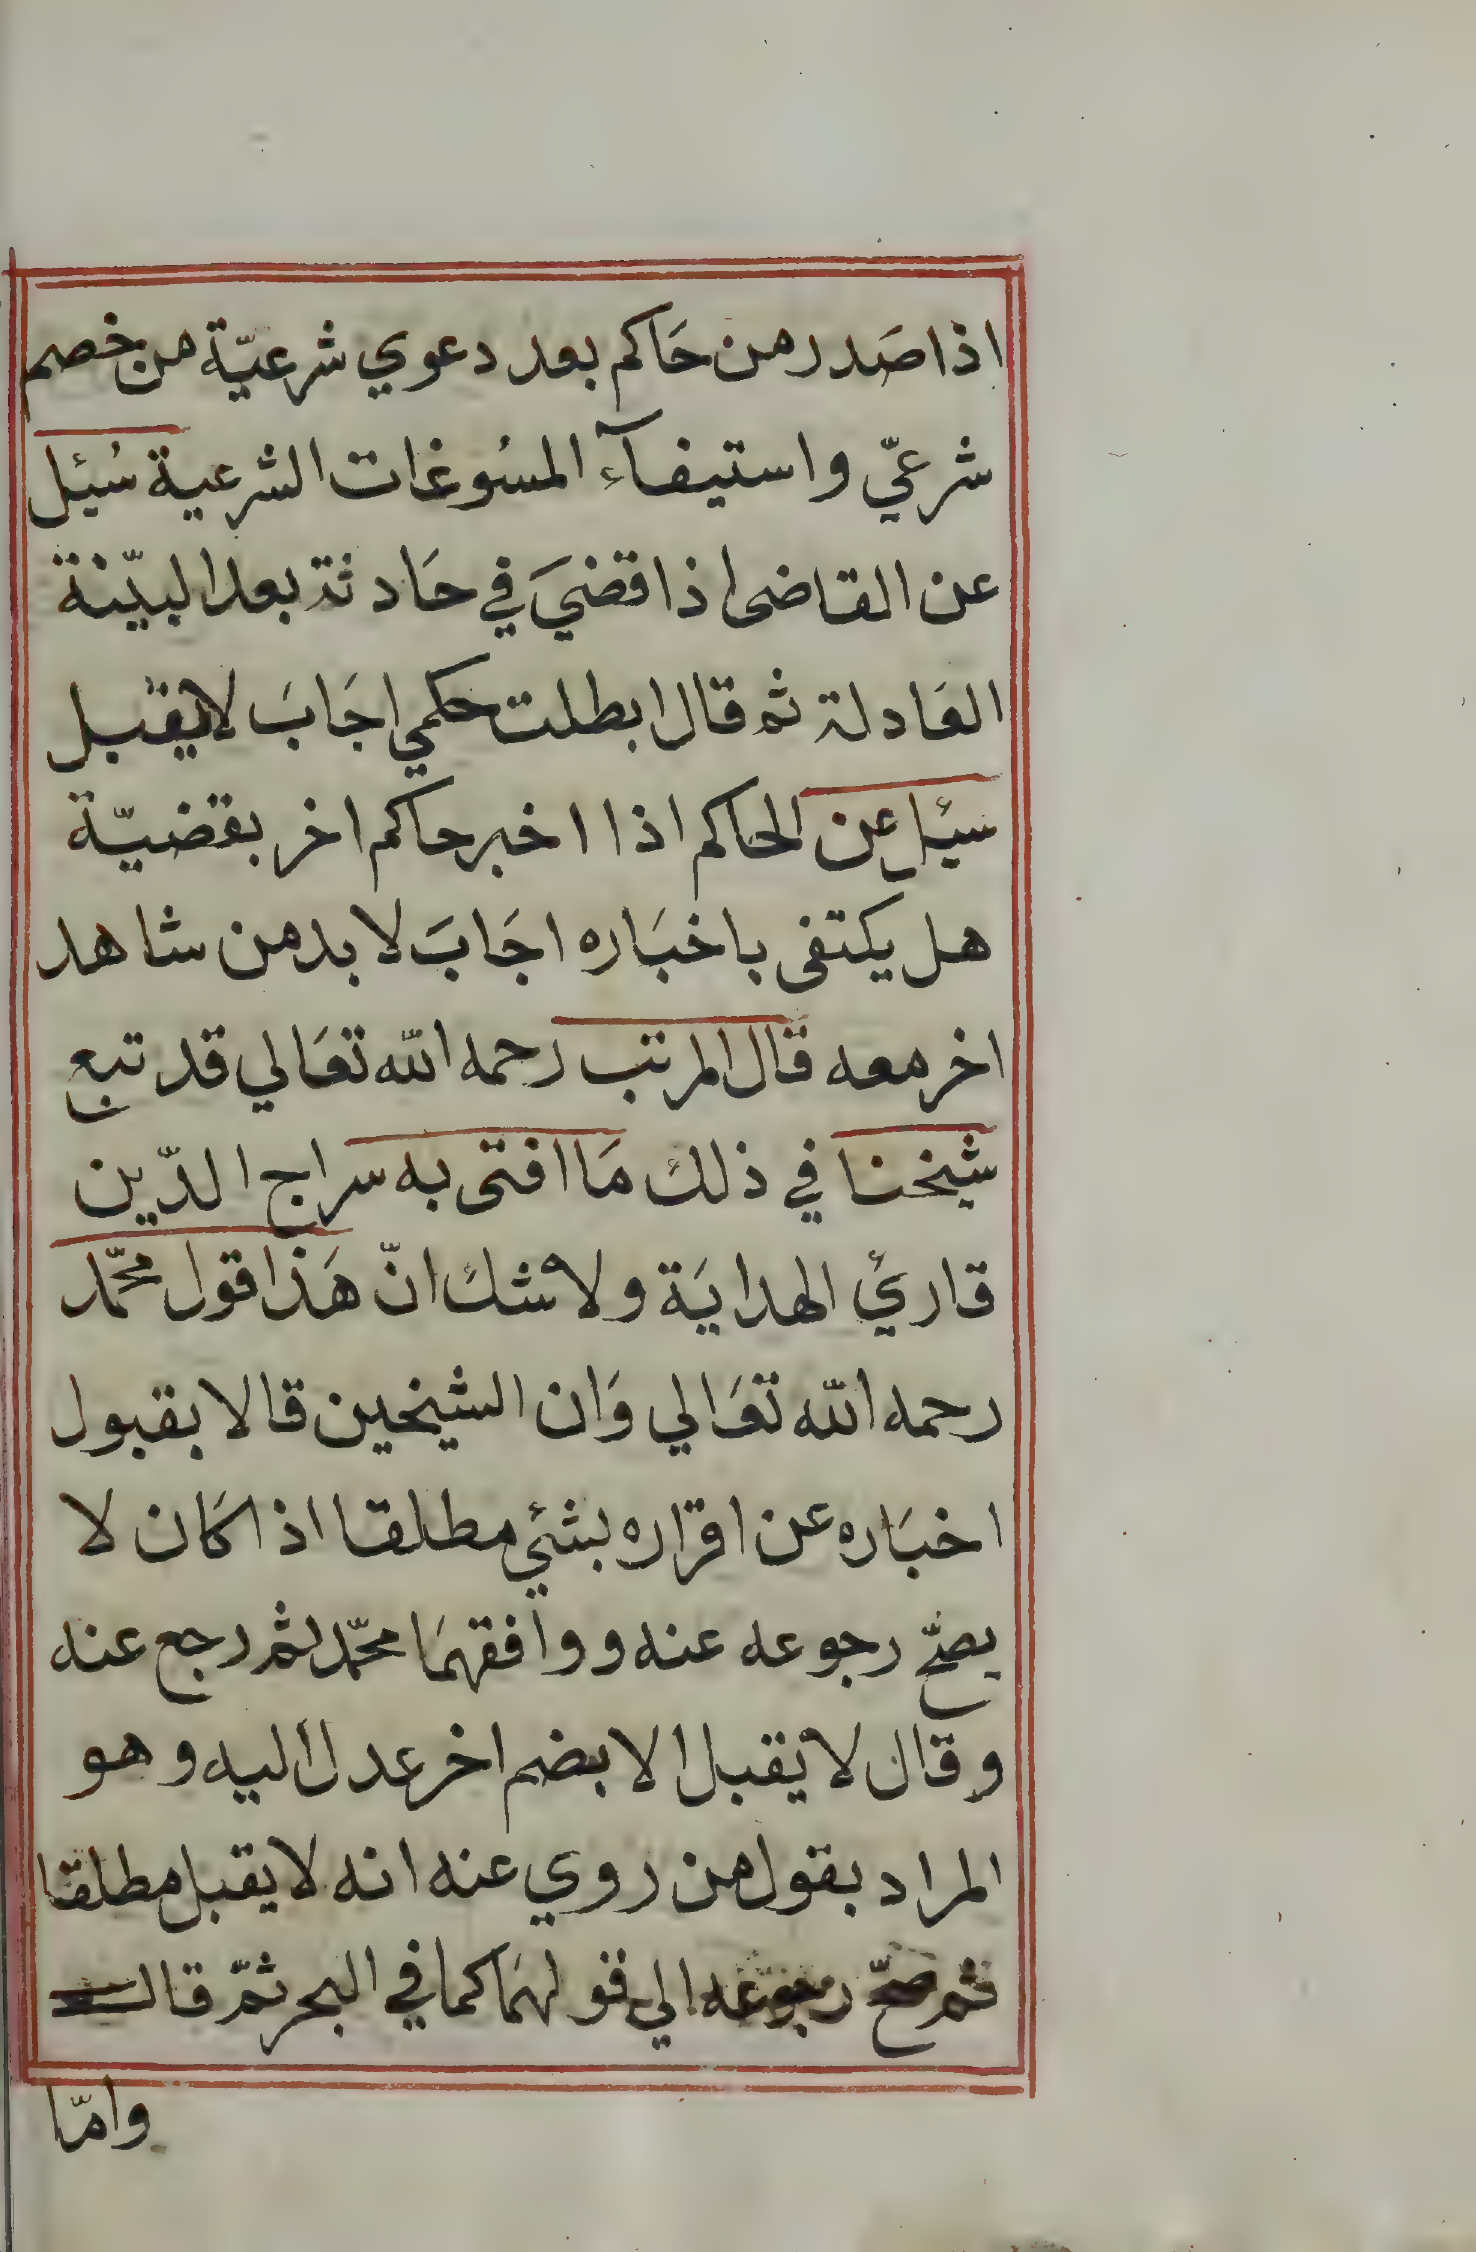 اذا صَدر من حَاكم بعد دعوي شرعيّة من خصم
شرعيّ واستيفآء المسُوغات الشرعية سُئل
عن القاضى اذا قضيَ في حَادثة بعد البيّنة
العَادلة ثم قال ابطلت حكمي اجَابَ لا يقبل
سئل عن الحاكم اذا اخبر حاكم اخر بقضيّة
هل يكتفى باخبَاره اجَابَ لا بد من شاهد
اخر معه قال المرتب رحمه الله تعَالي قد تبع
شيخنا في ذلك مَا افتى به سراج الدّين
قارئ الهدايَة ولا شك انّ هَذا قول محمّد
رحمه الله تعَالي وَان الشيخين قالا بقبول
اخبَاره عن اقراره بشئ مطلقا اذا كَان لا
يصحّ رجوعه عنه ووافقهمَا محمّد ثم رجع عنه
وقال لا يقبل الا بضم اخر عدل اليه وهو
المراد بقول من روي عنه انه لا يقبل مطلقا
ثم صحّ رجوعه الي قولهمَا كما في البحر ثمّ قال
وامّا